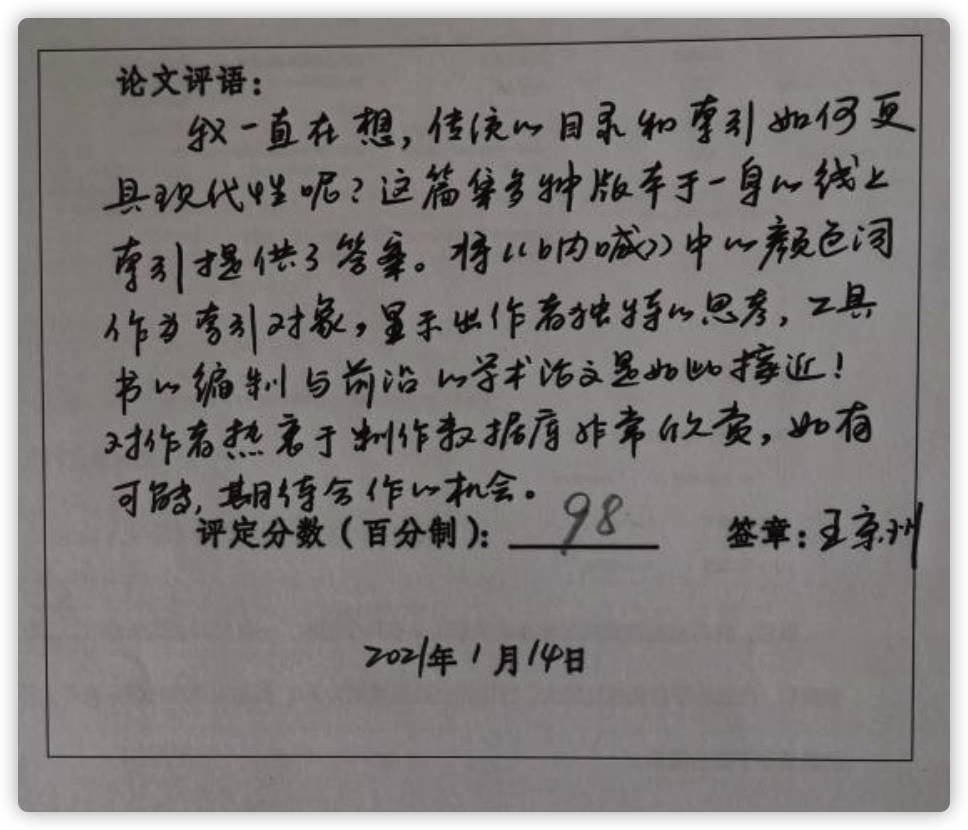 论文评语：
我一直在想，传统的目录和索引如何更
具现代性呢？这篇集多种版本于一身的线上
索引提供了答案。将《呐喊》中的颜色词
作为索引对象，显示出作者独特的思考，工具
书的编制与前沿的学术论文是如此接近！
对作者热衷于制作数据库非常欣赏，如有
可能，期待合作的机会。
评定分数（百分制）：98 签章：王京州
2021年1月14日